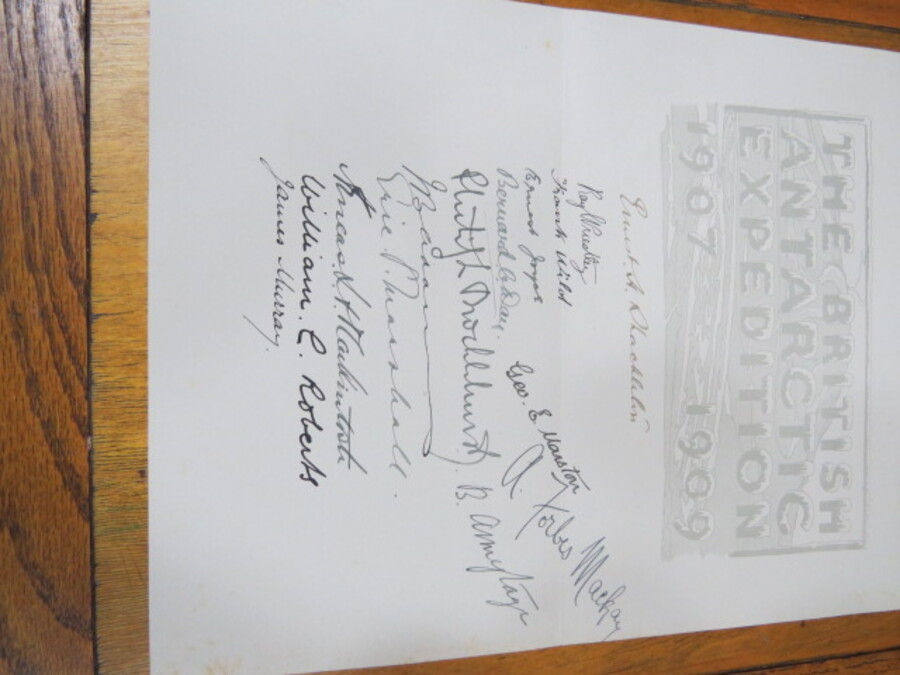 THE BRITISH
ANTARCTIC
EXPEDITION
1907 1909
Ernest H. Shackleton
Ray Priestley
Frank Wild
Ernest Joyce
Bernard C. Day.
Geo. E Marston
A. Forbes Mackay
Philip L Brocklehurst.
B. Armytage
Eric P. Marshall.
Æneas L. A. Mackintosh
William. C. Roberts
James Murray.